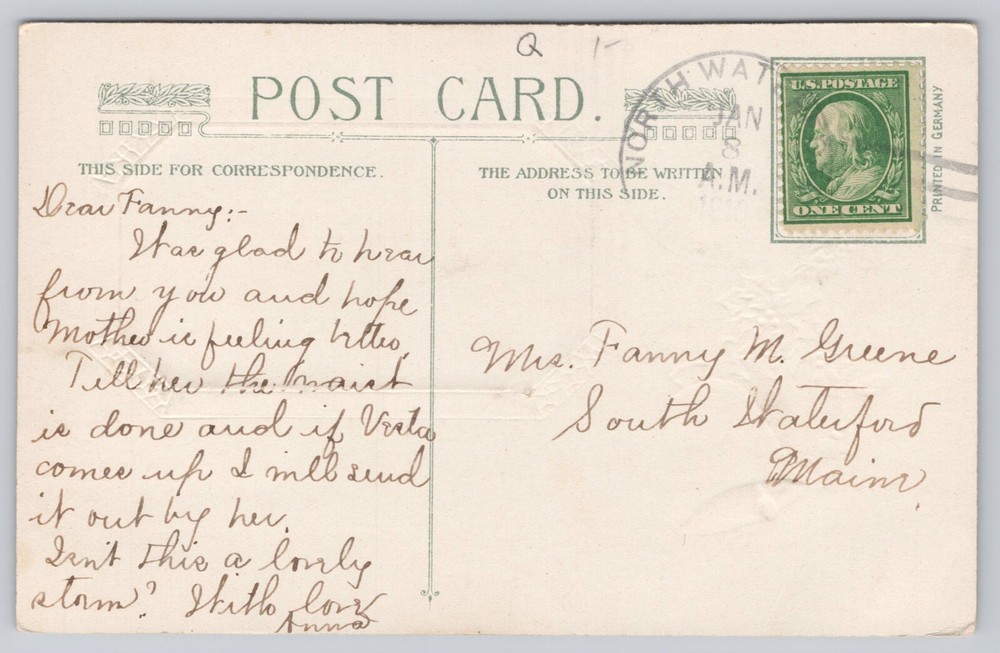 Q 1-
POST CARD.
NORTH WAT
JAN
8
A.M.
U.S. POSTAGE
ONE CENT
PRINTED IN GERMANY
THIS SIDE FOR CORRESPONDENCE.
THE ADDRESS TO BE WRITTEN
ON THIS SIDE.
Dear Fanny:-
Was glad to hear
from you and hope
Mother is feeling better.
Tell her the waist
is done and if Vesta
comes up I will send
it out by her.
Isn't this a lovely
storm? With love
Anna
Mrs. Fanny M. Greene
South Waterford
Maine